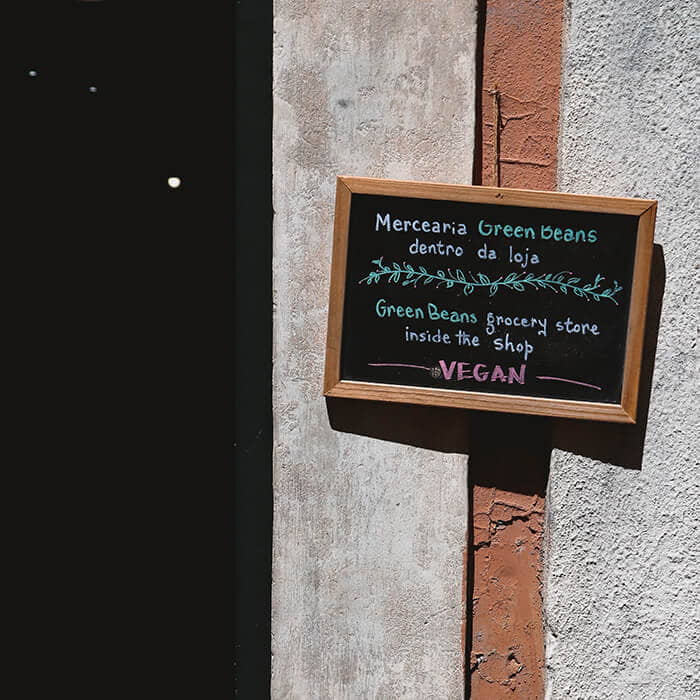 Mercearia Green Beans
dentro da loja
Green Beans grocery store
inside the shop
#VEGAN